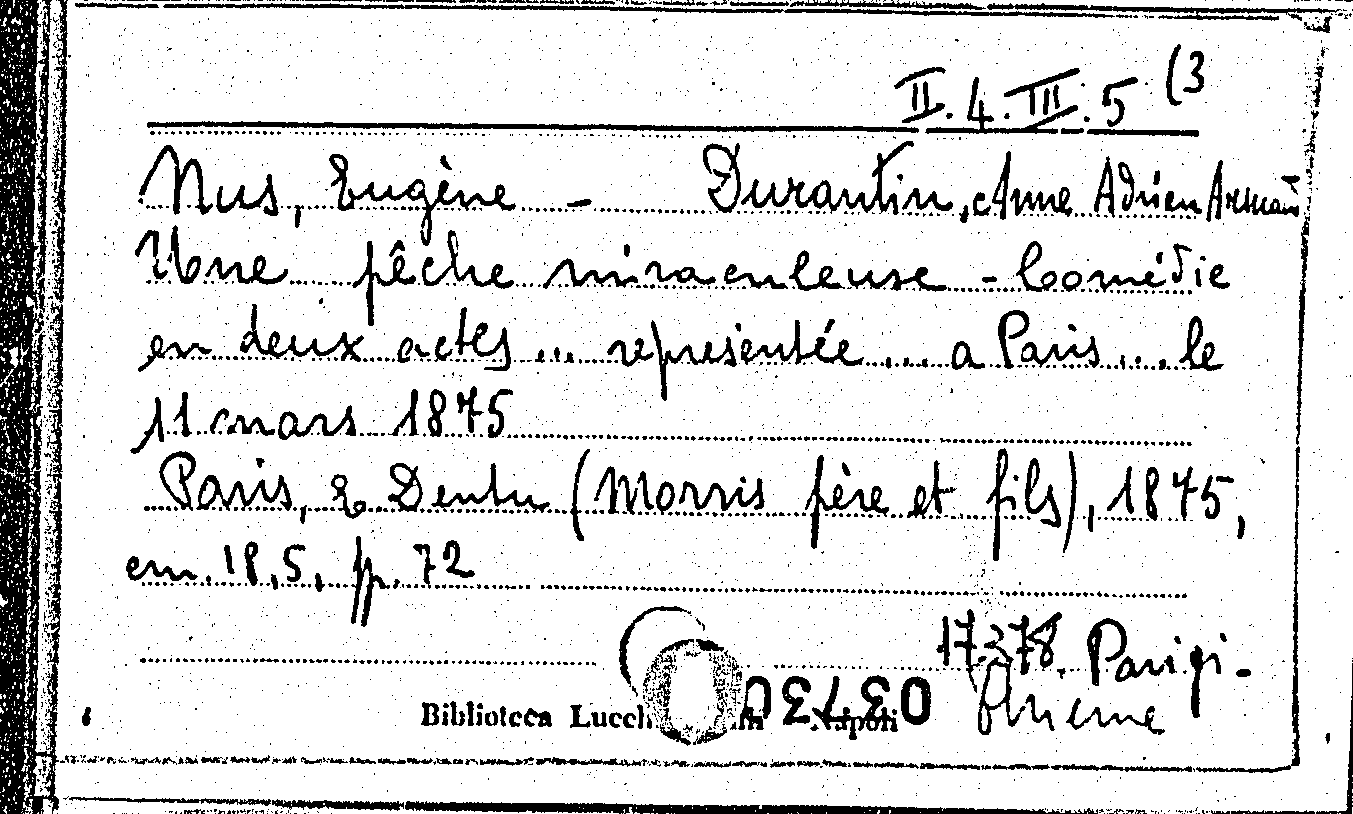 II.4.III.5 (3
Nus, Eugène - Durantin, Anne Adrien Arman
Une pêche miraculeuse - Comédie
en deux actes ... représentée ... a Paris ... le
11 mars 1875
Paris, E Dentu (Morris père et fils), 1875,
cm. 18,5, pp. 72
17378. Parigi-
Biblioteca Lucch Napoli